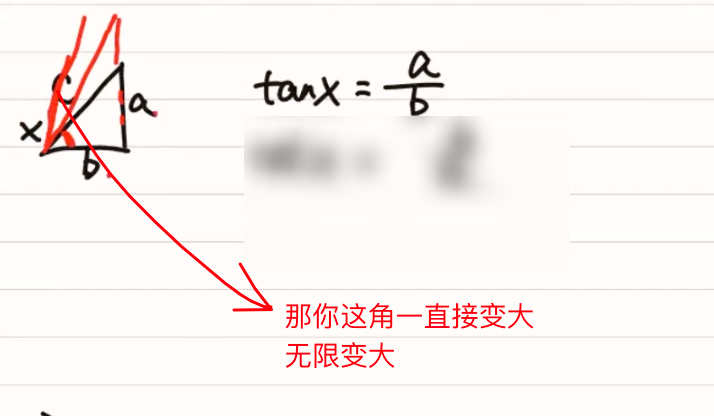 c
a
x
b
tanx = a/b
那你这角一直接变大
无限变大